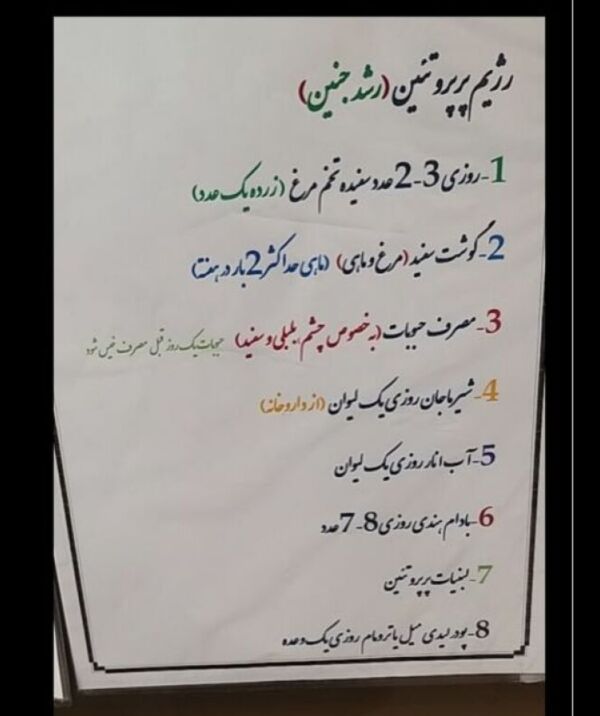 رژیم پرپروتئین (رشد جنین)
1-روزی 3-2 عدد سفیده تخم مرغ (زرده یک عدد)
2-گوشت سفید (مرغ و ماهی) (ماهی حداکثر 2 بار در هفته)
3-مصرف حبوبات (به خصوص چشم بلبلی و سفید) حبوبات یک روز قبل مصرف خیس شود
4-شیر ماجان روزی یک لیوان (از داروخانه)
5-آب انار روزی یک لیوان
6-بادام هندی روزی 8-7 عدد
7-لبنیات پرپروتئین
8-پودر لیدی میل یا ترومام روزی یک وعده